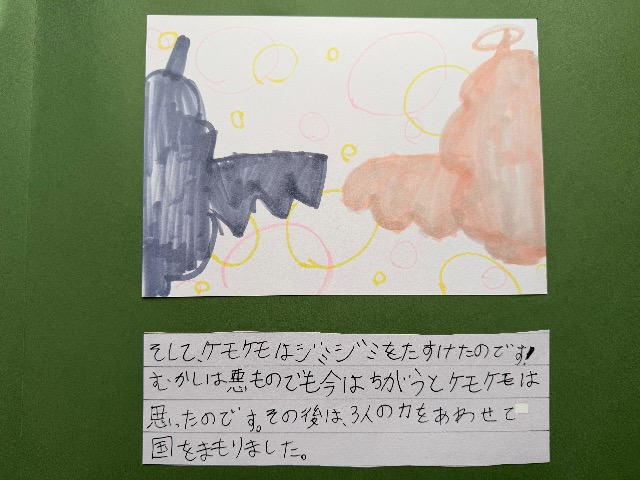 そして、ケモケモはジミジミをたすけたのです!
むかしは悪ものでも今はちがうとケモケモは
思ったのです。その後は、3人の力をあわせて
国をまもりました。